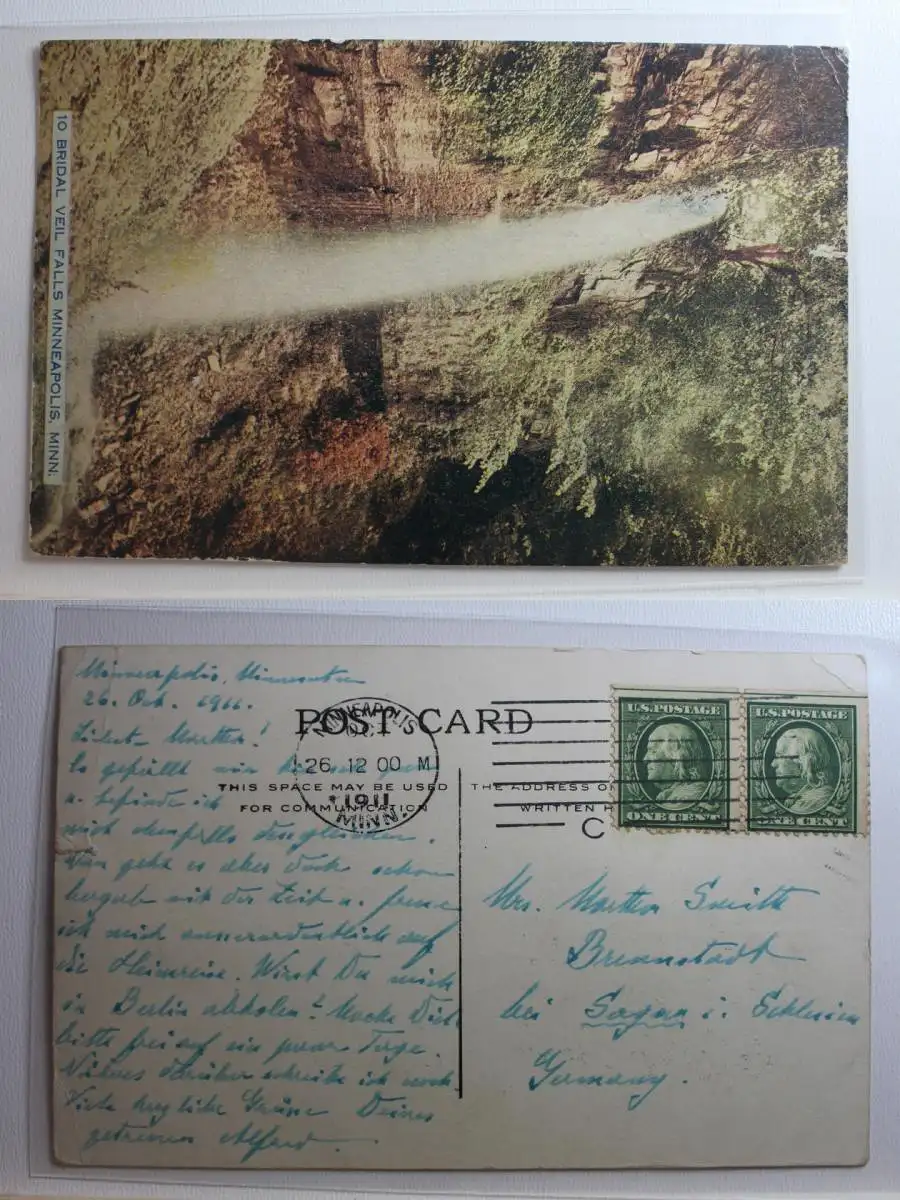 10 BRIDAL VEIL FALLS MINNEAPOLIS, MINN.
Minneapolis, Minnesota
26. Oct. 1911.
Liebste Martha!
Es gefällt mir hier
u. befinde ich
mich ebenfalls desgleichen.
Nun geht es aber doch schon
bergab mit der Zeit u. freue
ich mich ausserordentlich auf
die Heimreise. Wirst Du mich
in Berlin abholen? Mache Dich
bitte frei auf ein paar Tage.
Näheres darüber schreibe ich noch.
Viele herzliche Grüsse Deines
getreuen Alfred.
POST CARD
MINNEAPOLIS
OCT
26. 12 00 M
1911
MINN.
THIS SPACE MAY BE USED
FOR COMMUNICATION
THE ADDRESS O
WRITTEN H
C
U.S. POSTAGE
ONE CENT
U.S. POSTAGE
ONE CENT
Mrs. Martha Smith
Brennstadt
bei Sagan i. Schlesien
Germany.